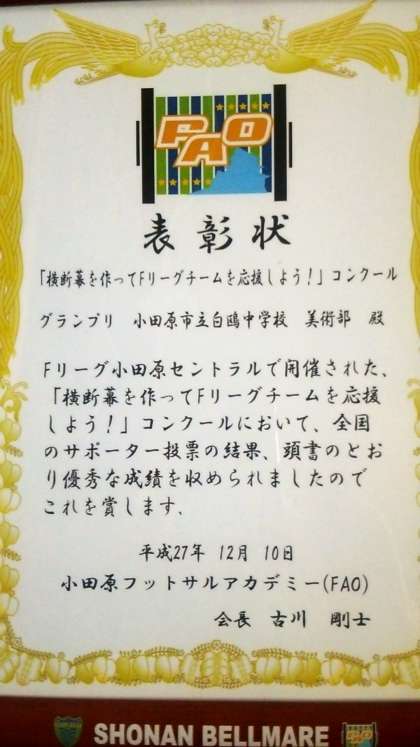 FAO
表彰状
「横断幕を作ってFリーグチームを応援しよう!」コンクール
グランプリ 小田原市立白鴎中学校 美術部 殿
Fリーグ小田原セントラルで開催された、
「横断幕を作ってFリーグチームを応援
しよう!」コンクールにおいて、全国
のサポーター投票の結果、頭書のとお
り優秀な成績を収められましたので
これを賞します.
平成27年 12月 10日
小田原フットサルアカデミー(FAO)
会長 古川 剛士
SHONAN BELLMARE FAO